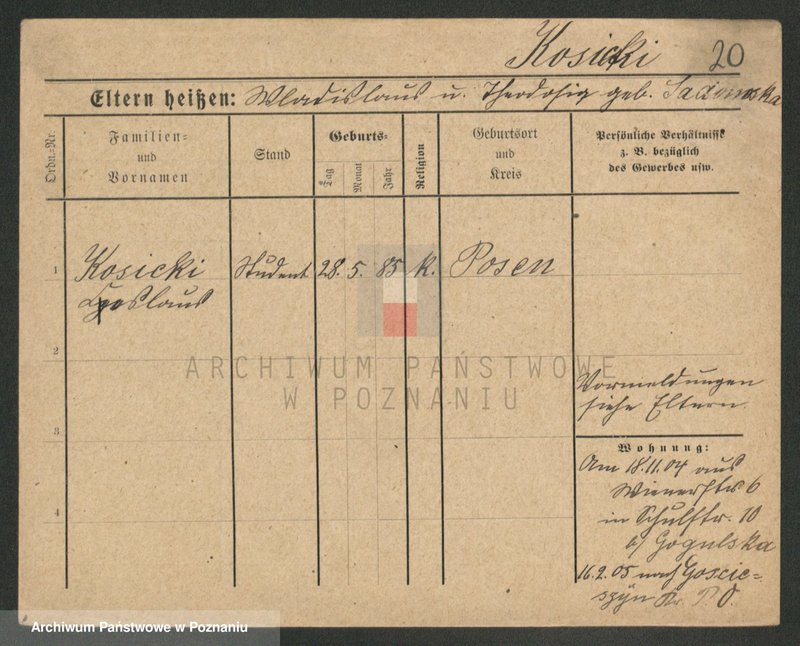 Kosicki 20
Eltern heißen: Wladislaus u. Theodosia geb.
Ordn.-Nr.
Familien-
und
Vornamen
Stand
Geburts-
Tag
Monat
Jahr
Religion
Geburtsort
und
Kreis
Persönliche Verhältnisse
z. B. bezüglich
des Gewerbes usw.
1 Kosicki Student 28. 5. 85 k. Posen
2
3
4
ARCHIWUM PAŃSTWOWE
W POZNANIU
Vormeldungen
siehe Eltern
Wohnung:
Am 18.11.04 aus
Wienerstr. 6
in Schulstr. 10
b/ Gogulska
16.2.05 nach Goscie-
szyn Kr.
Archiwum Państwowe w Poznaniu